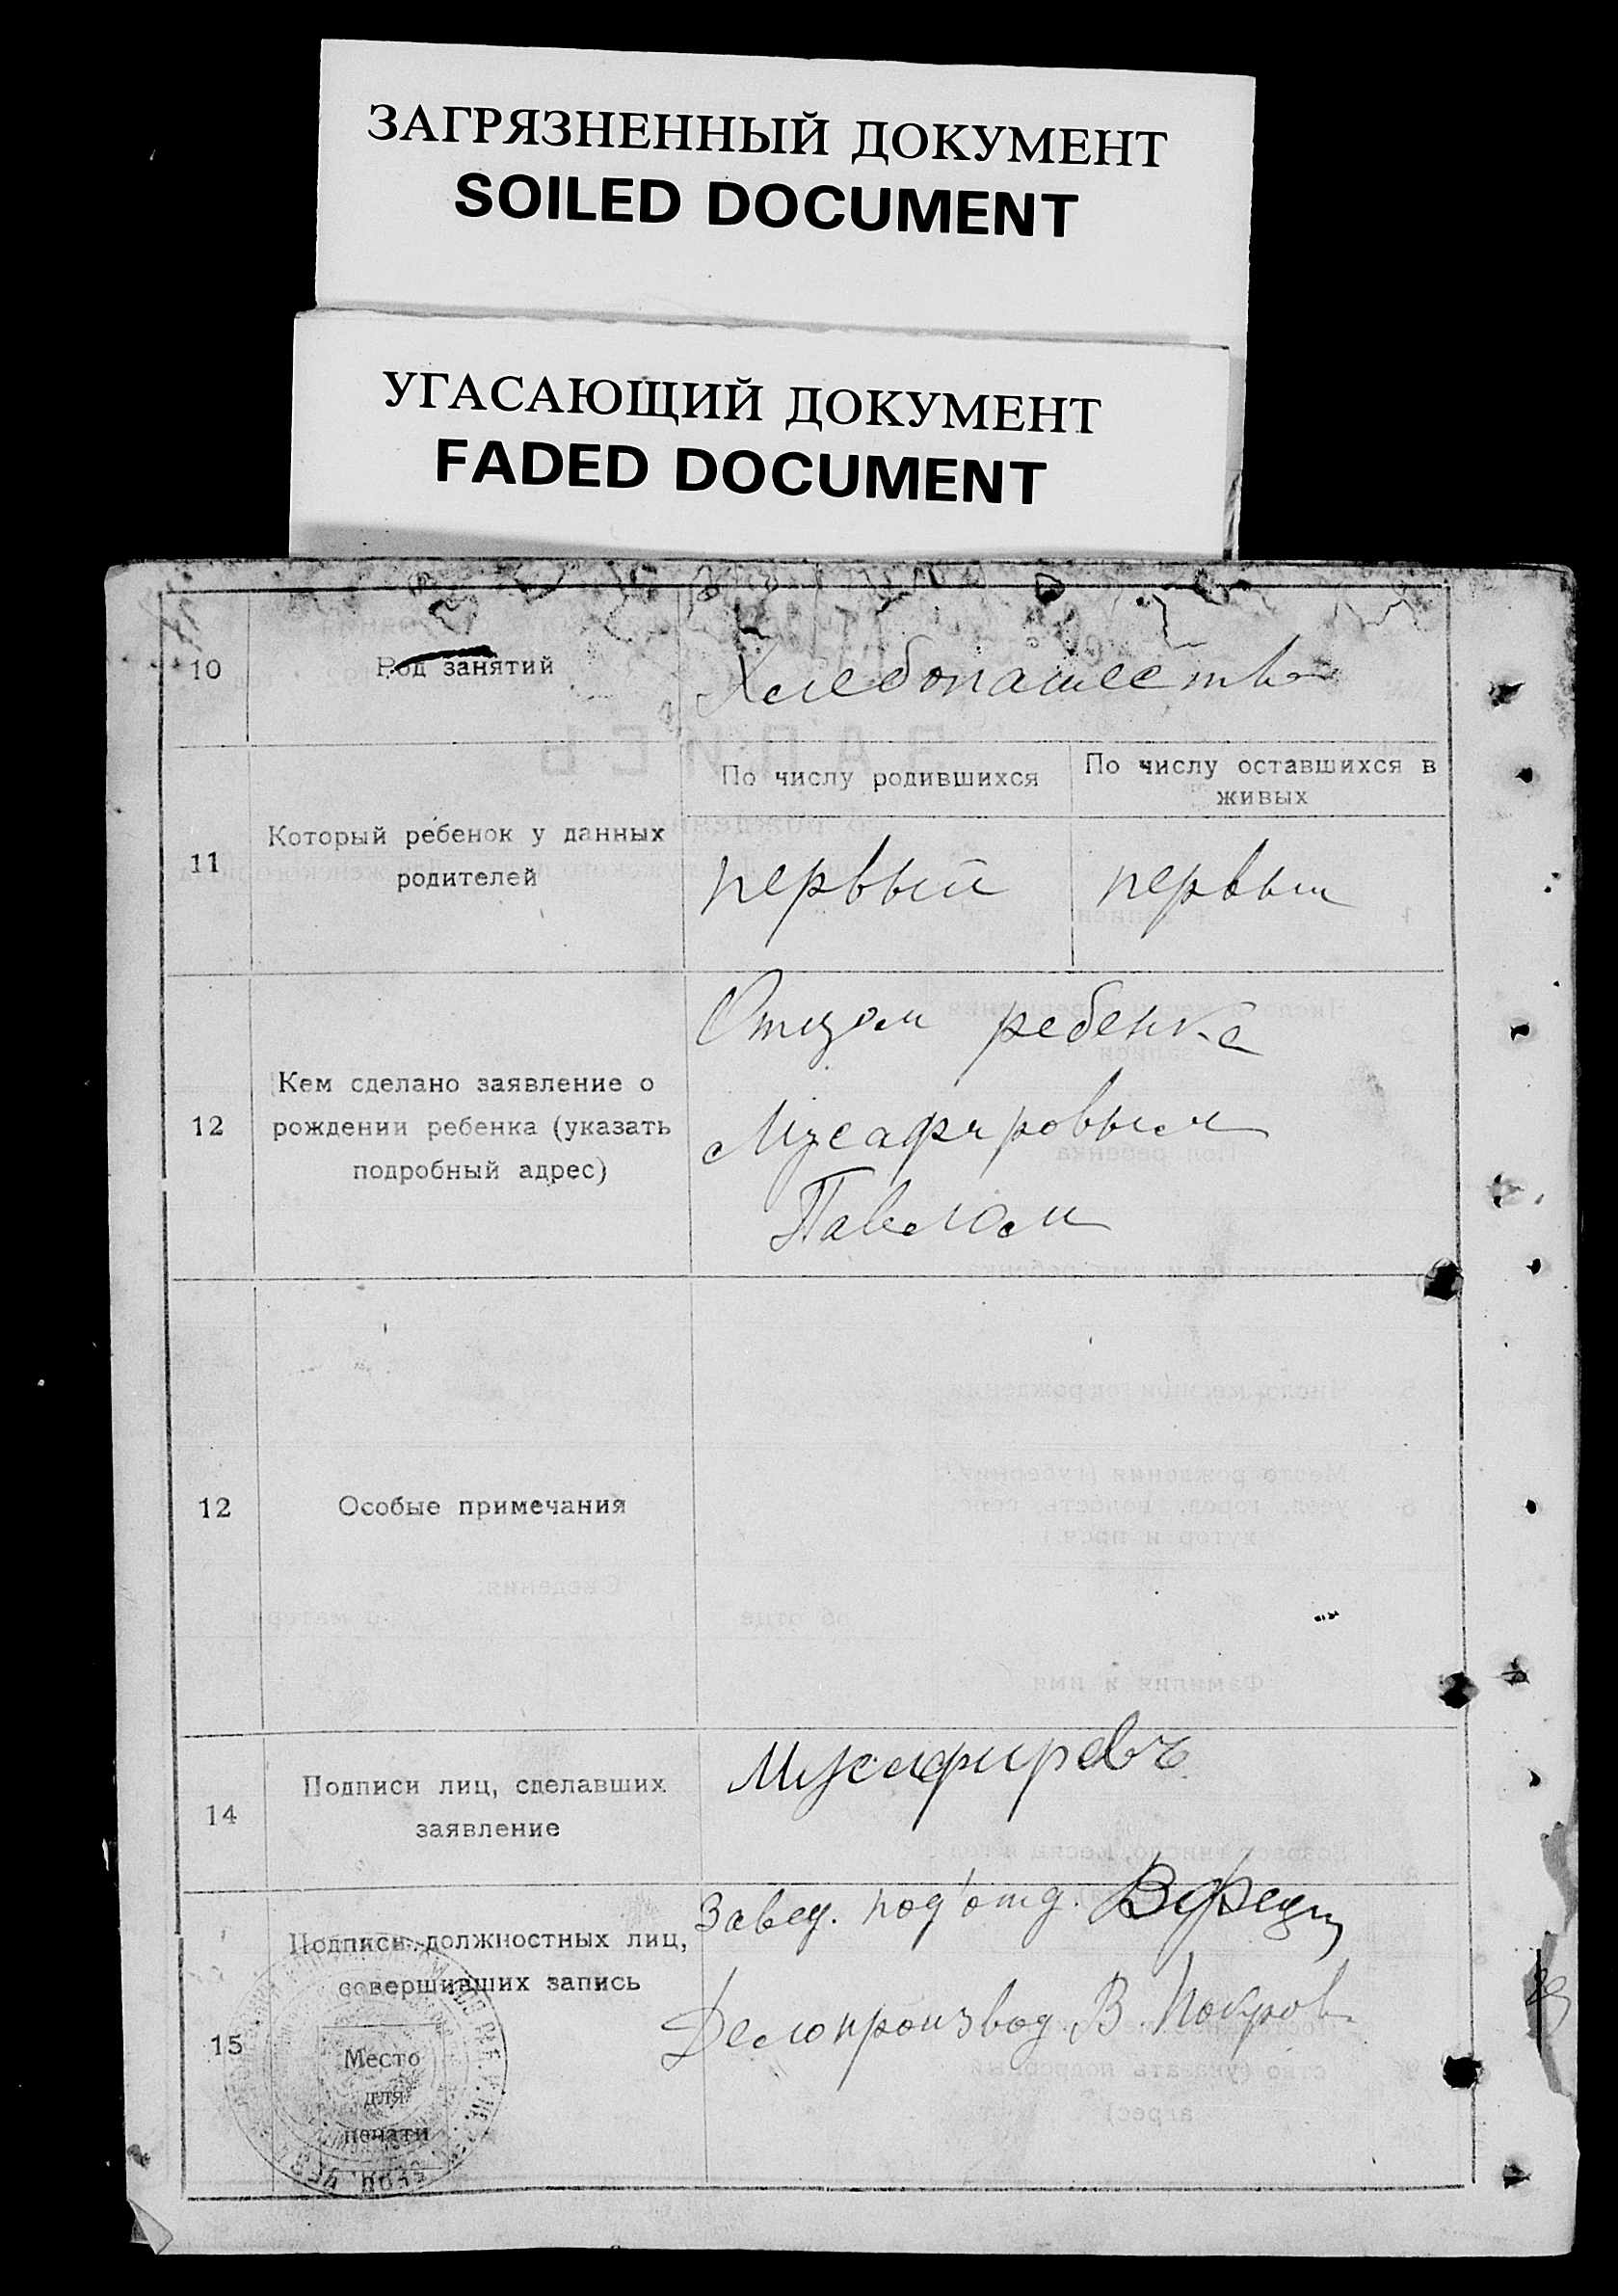 ЗАГРЯЗНЕННЫЙ ДОКУМЕНТ
SOILED DOCUMENT
УГАСАЮЩИЙ ДОКУМЕНТ
FADED DOCUMENT
10 Род занятий Хлебопашество
11 Который ребенок у данных
родителей
По числу родившихся
По числу оставшихся в
живых
первый первый
12 Кем сделано заявление о
рождении ребенка (указать
подробный адрес)
Отцом ребенка
Мусафировым
Павелом
12 Особые примечания
14 Подписи лиц, сделавших
заявление
Мусафировъ
15 Подписи должностных лиц,
совершивших запись
Завед. под'отд.
Делопроизвод В. Покров
Место
для
печати